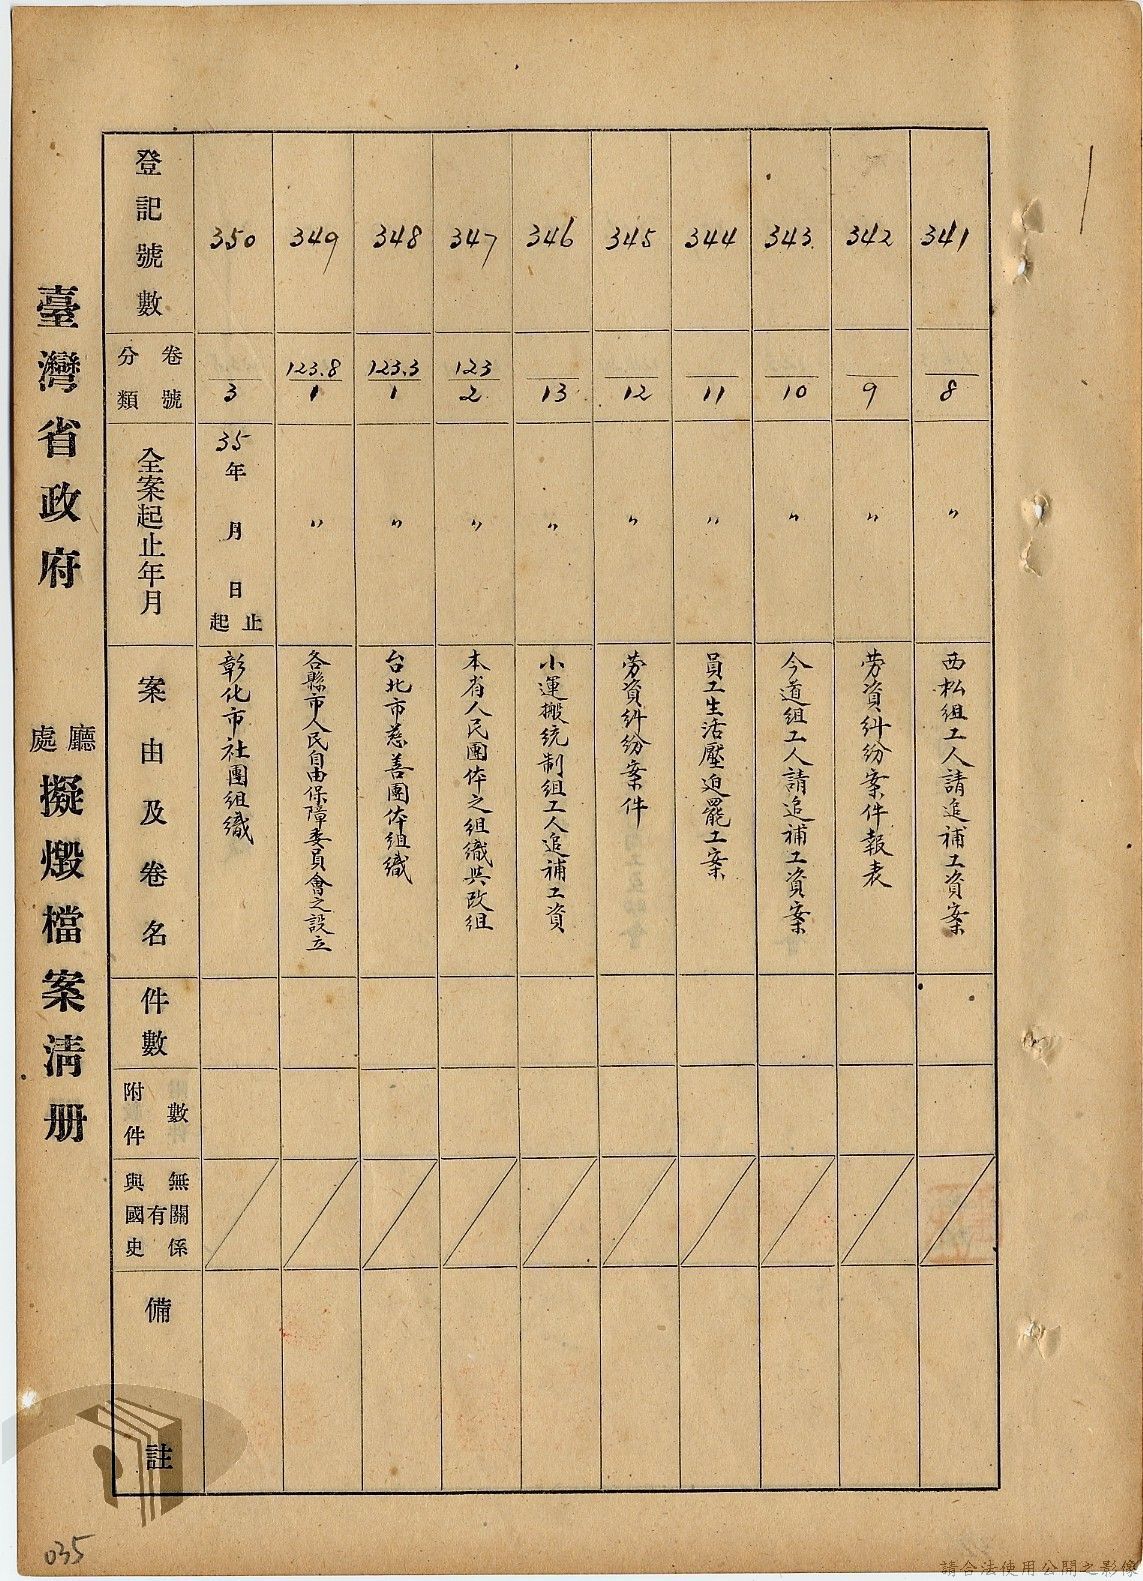 臺灣省政府 廳處 擬燬檔案清册
登記號數
分類 卷號
全案起止年月
案由及卷名
件數
附件 數
與國史 有 無關係
備註
350
3
35年 月 日 起止
彰化市社團組織
349
123.8
1
〃
各縣市人民自由保障委員會之設立
348
123.3
1
〃
台北市慈善團体組織
347
123
2
〃
本省人民團体之組織與改組
346
13
〃
小運搬統制組工人追補工資
345
12
〃
勞資糾紛案件
344
11
〃
員工生活壓迫罷工案
343
10
〃
今道組工人請追補工資案
342
9
〃
勞資糾紛案件報表
341
8
〃
西松組工人請追補工資案
035
請合法使用公開之影像